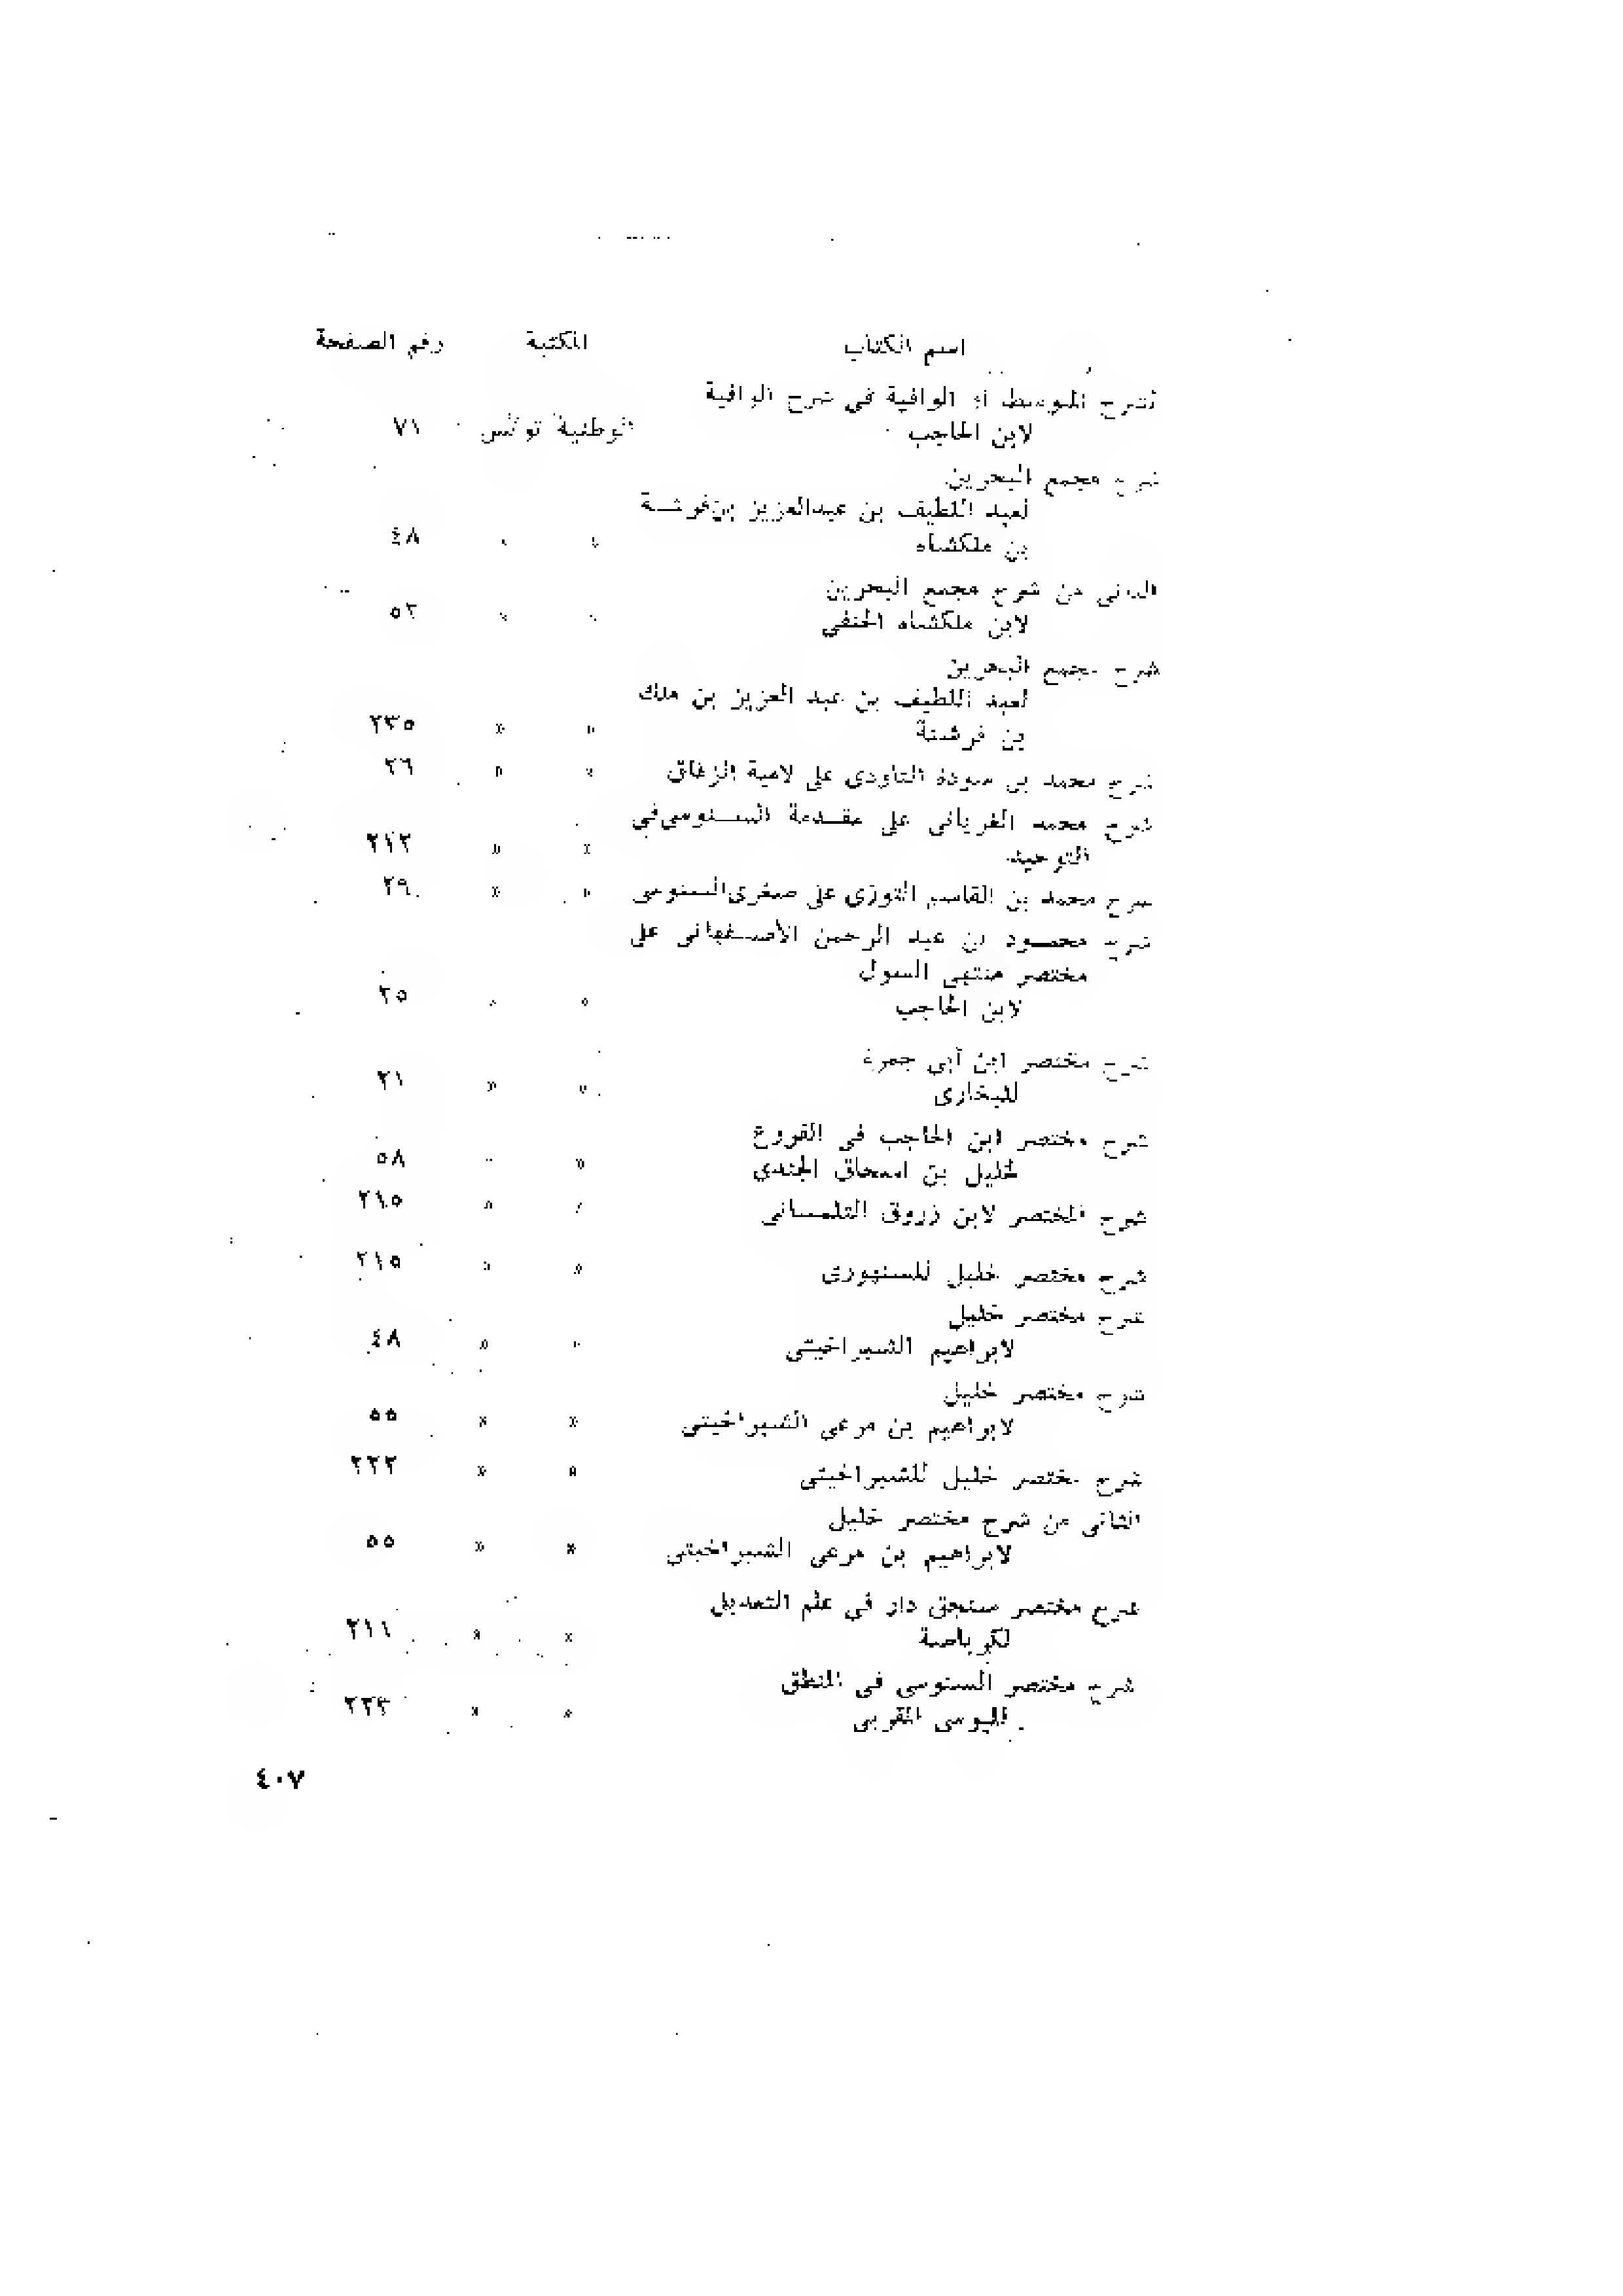 اسم الكتاب المكتبة رقم الصفحة
الشرح المتوسط أو الوافية في شرح الوافية
لابن الحاجب الوطنية تونس ٧١
شرح مجمع البحرين
لعبد اللطيف بن عبدالعزيز بن فرشتة
بن ملكشاه » » ٤٨
الثاني من شرح مجمع البحرين
لابن ملكشاه الحنفي » »
شرح مجمع البحرين
لعبد اللطيف بن عبد العزيز بن ملك
بن فرشتة » » ٢٣٥
شرح محمد بن سودة التاودي على لامية الزقاق » » ٢٦
شرح محمد الغرياني على مقدمة السنوسي في
التوحيد » » ٢١٢
شرح محمد بن القاسم التوزي على صغرى السنوسي » » ٢٩
شرح محمود بن عبد الرحمن الأصفهاني على
مختصر منتهى السول
لابن الحاجب » » ٢٥
شرح مختصر ابن أبي جمرة
للبخاري » » ٢١
شرح مختصر ابن الحاجب في الفروع
لخليل بن اسحاق الجندي » » ٥٨
شرح المختصر لابن زروق التلمساني » » ٢١٥
شرح مختصر خليل للسنهوري » » ٢١٥
شرح مختصر خليل
لابراهيم الشبراخيتي » » ٤٨
شرح مختصر خليل
لابراهيم بن مرعي الشبراخيتي » » ٥٥
شرح مختصر خليل للشبراخيتي » » ٢٢٢
الثاني من شرح مختصر خليل
لابراهيم بن مرعي الشبراخيتي » » ٥٥
شرح مختصر سنجق دار في علم التعديل
لكرباصة » » ٢١١
شرح مختصر السنوسي في المنطق
لليوسي المغربي » » ٢٢٣
٤٠٧